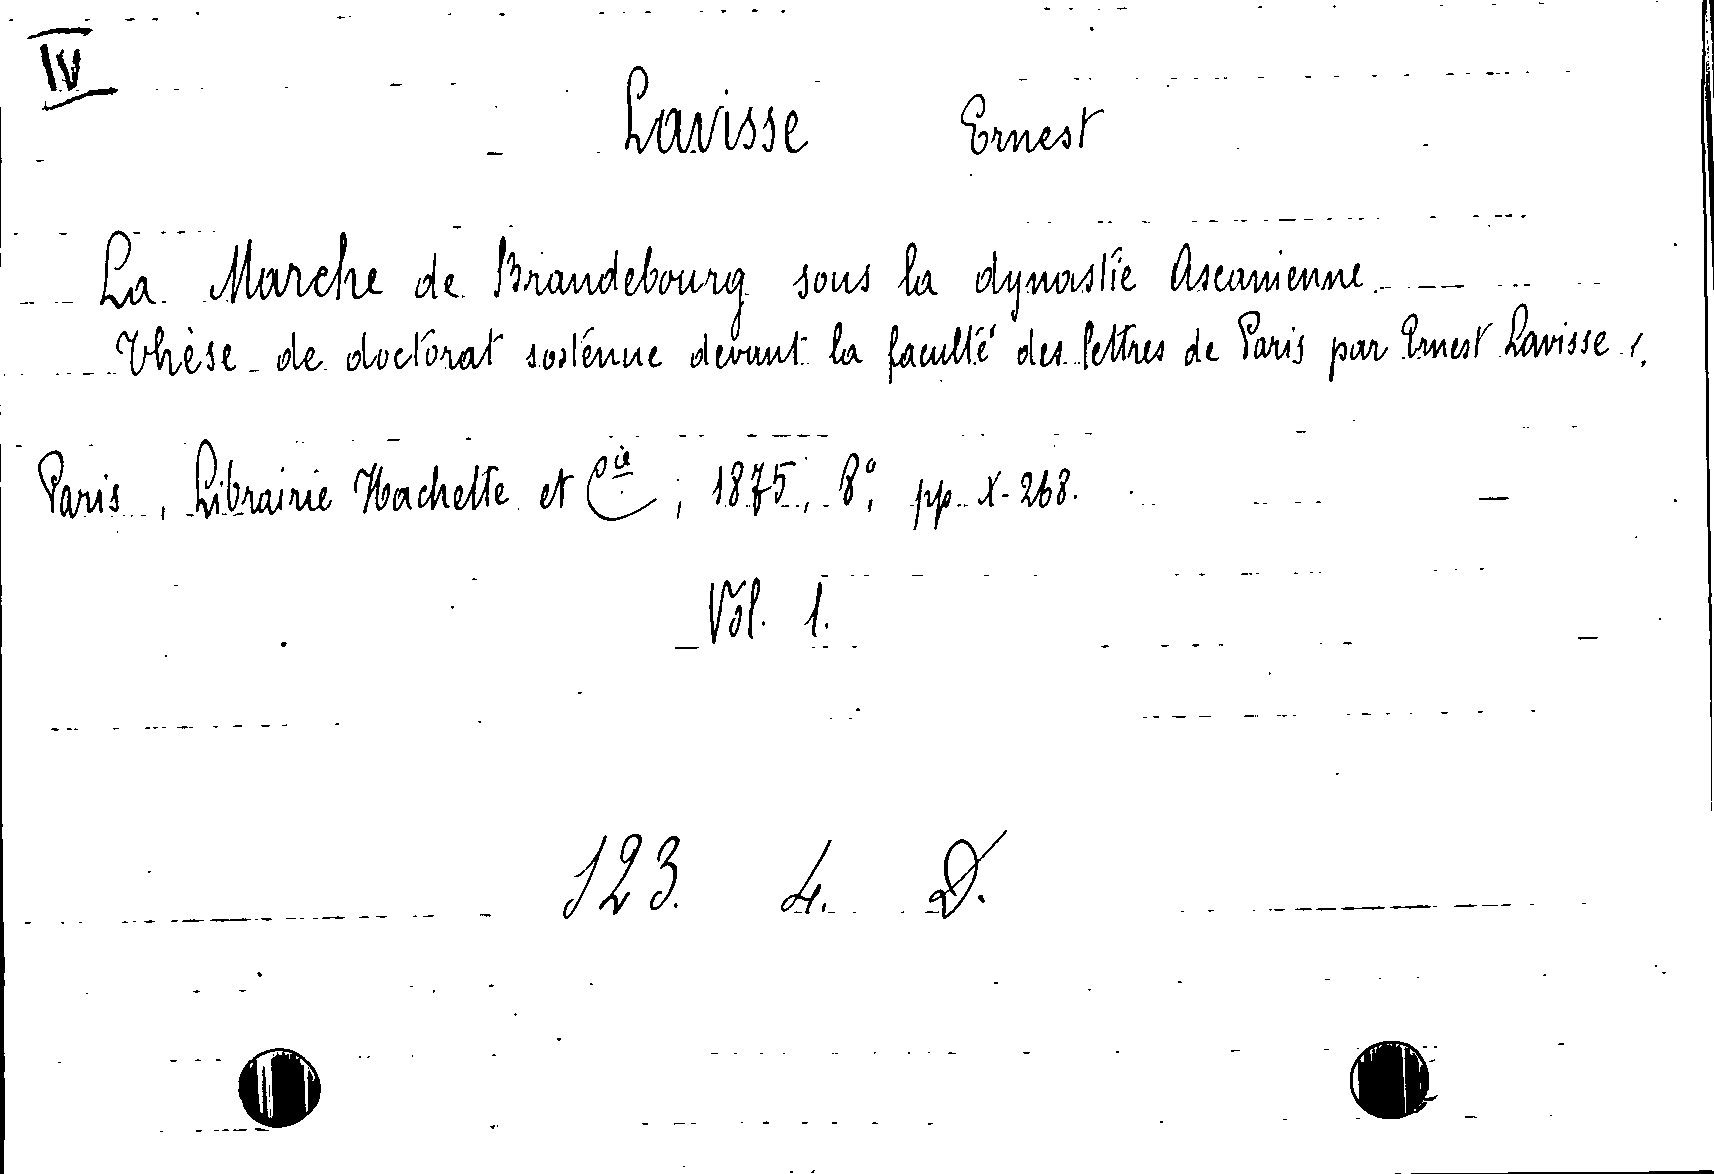 IV
Lavisse Ernest
La Marche de Brandebourg sous la dynastie Ascanienne
Thèse de doctorat soslénue devant la faculté des lettres de Paris par Ernest Lavisse.
Paris, Librairie Hachette et Cie, 1875, 8°, pp. X-268.
Vol. 1.
123. 4. D.